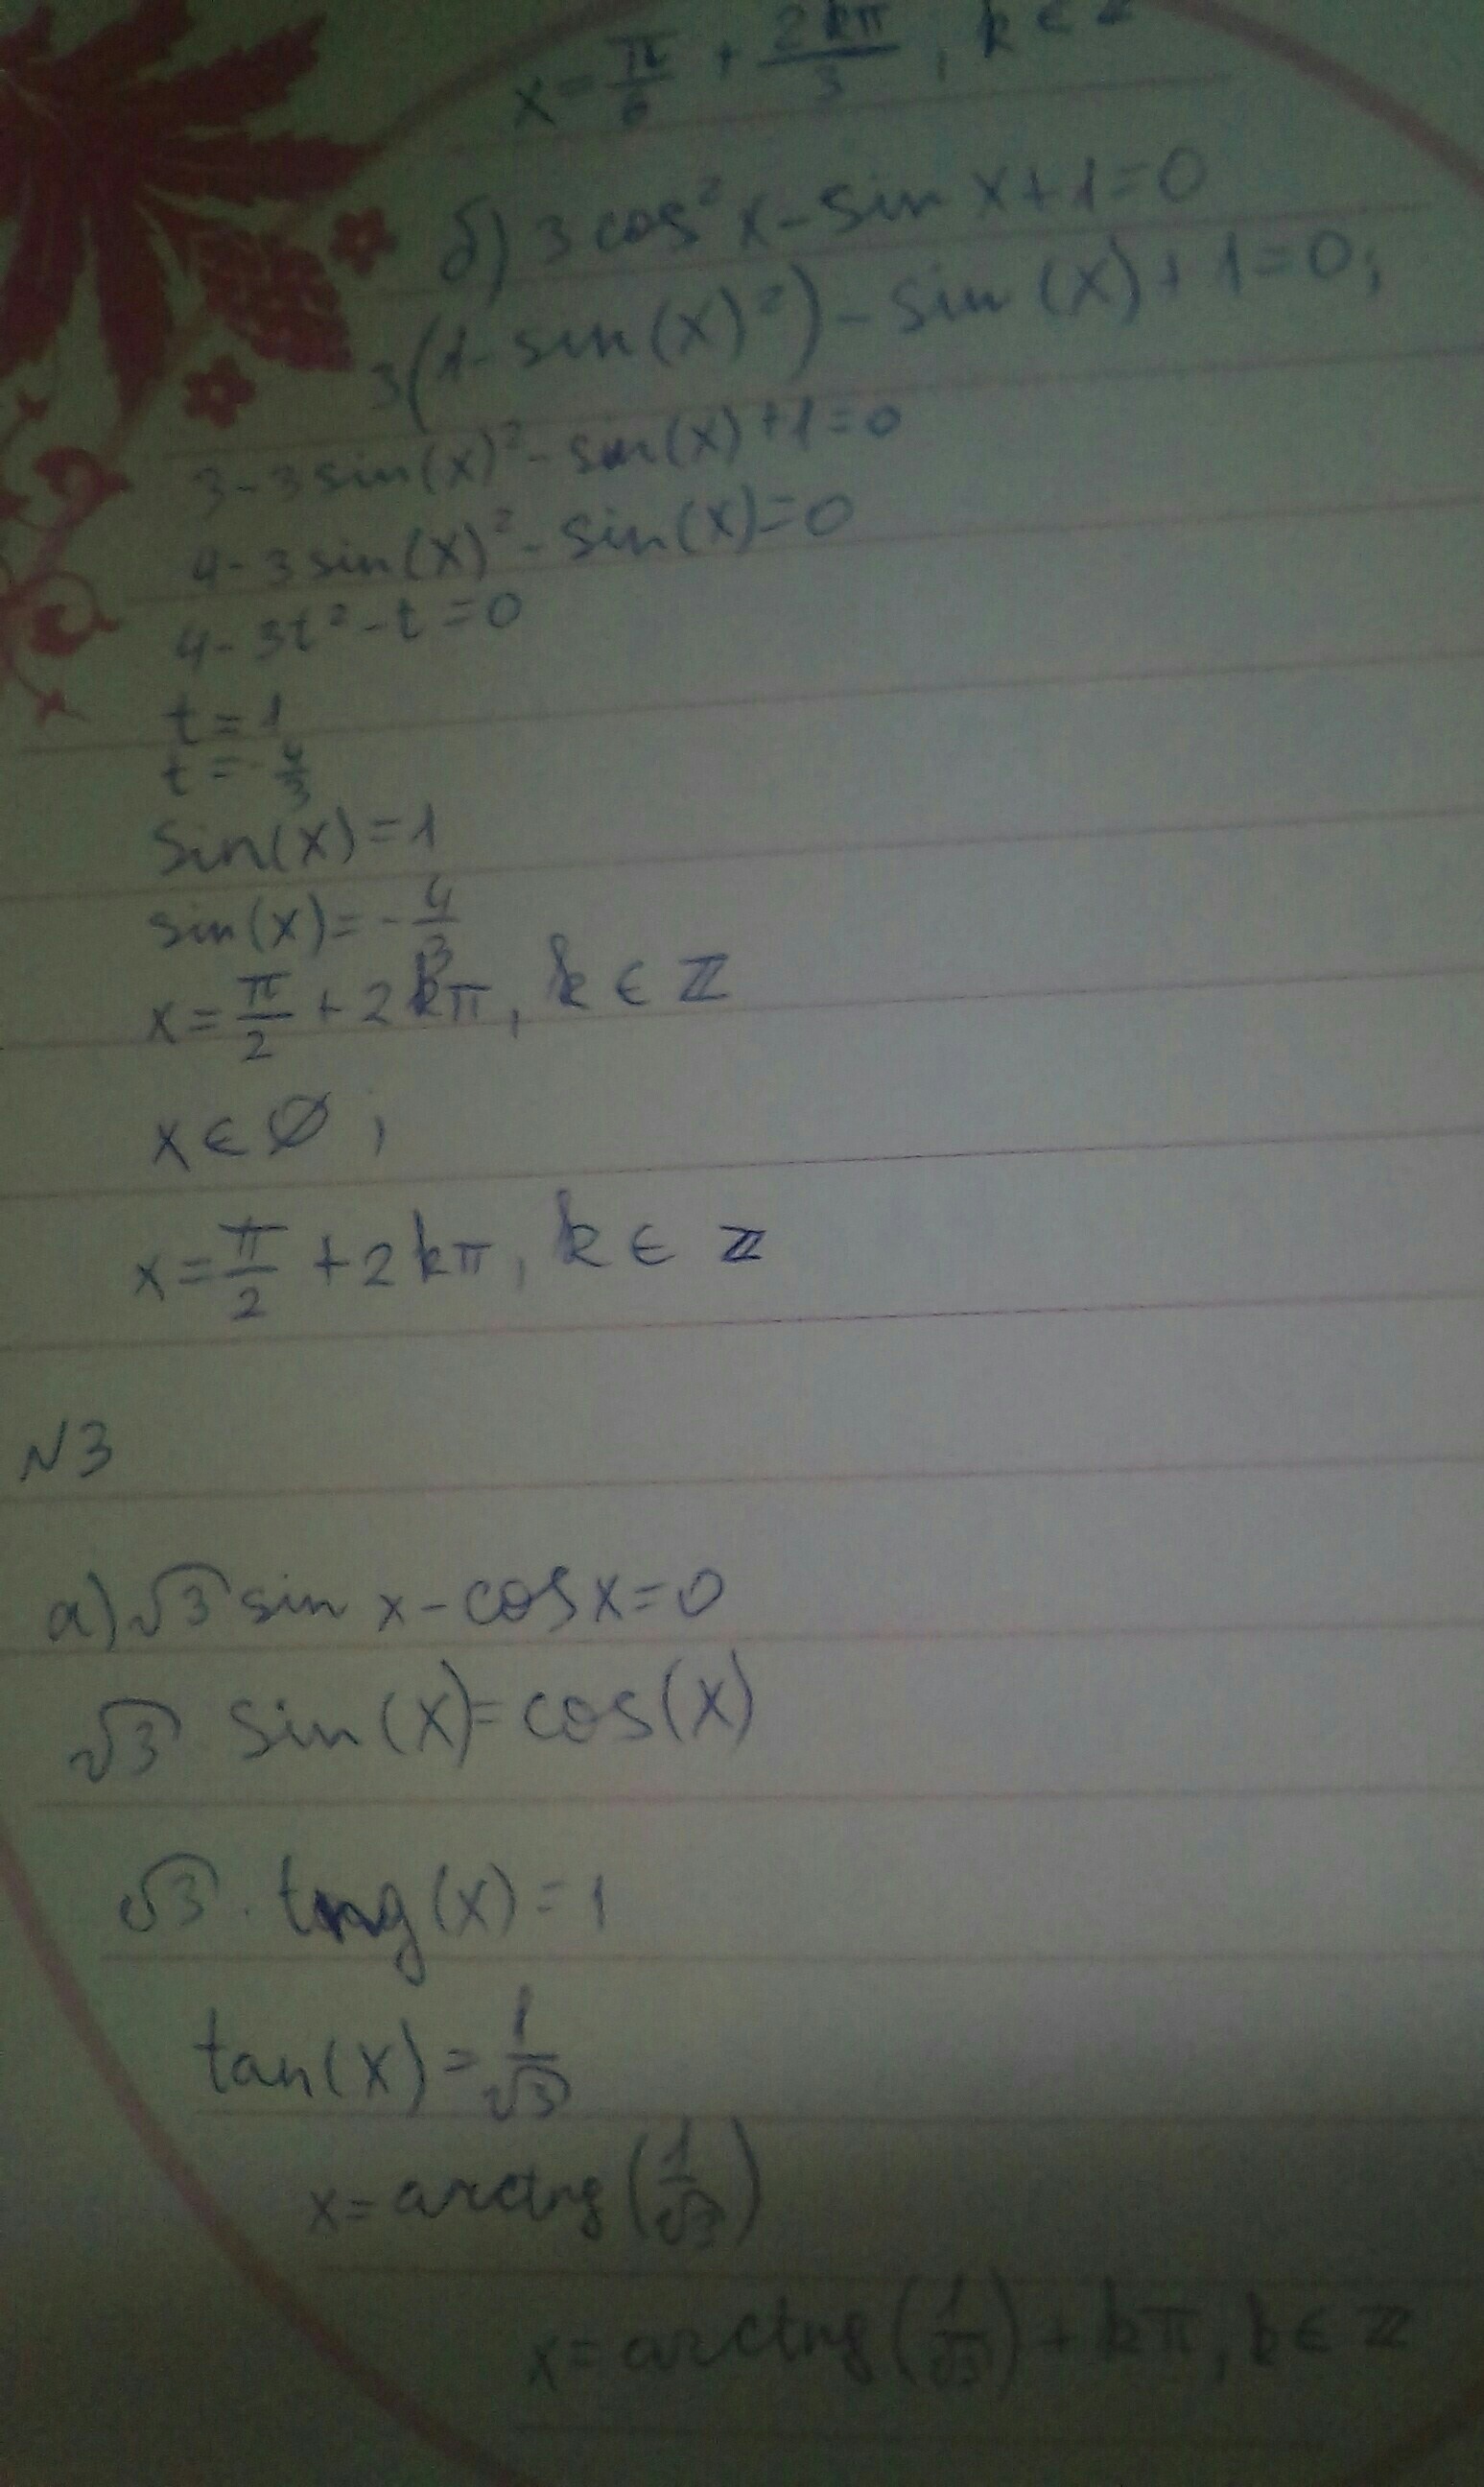 x = π/6 + 2kπ/3, k ∈ Z
б) 3 cos² x - sin x + 1 = 0
3(1 - sin(x)²) - sin(x) + 1 = 0;
3 - 3 sin(x)² - sin(x) + 1 = 0
4 - 3 sin(x)² - sin(x) = 0
4 - 3t² - t = 0
t = 1
t = -4/3
Sin(x) = 1
sin(x) = -4/3
x = π/2 + 2kπ, k ∈ Z
x ∈ ∅;
x = π/2 + 2kπ, k ∈ Z
N3
a) √3 sin x - cos x = 0
√3 sin(x) = cos(x)
√3 · tng(x) = 1
tan(x) = 1/√3
x = arctng(1/√3)
x = arctng(1/√3) + kπ, k ∈ Z